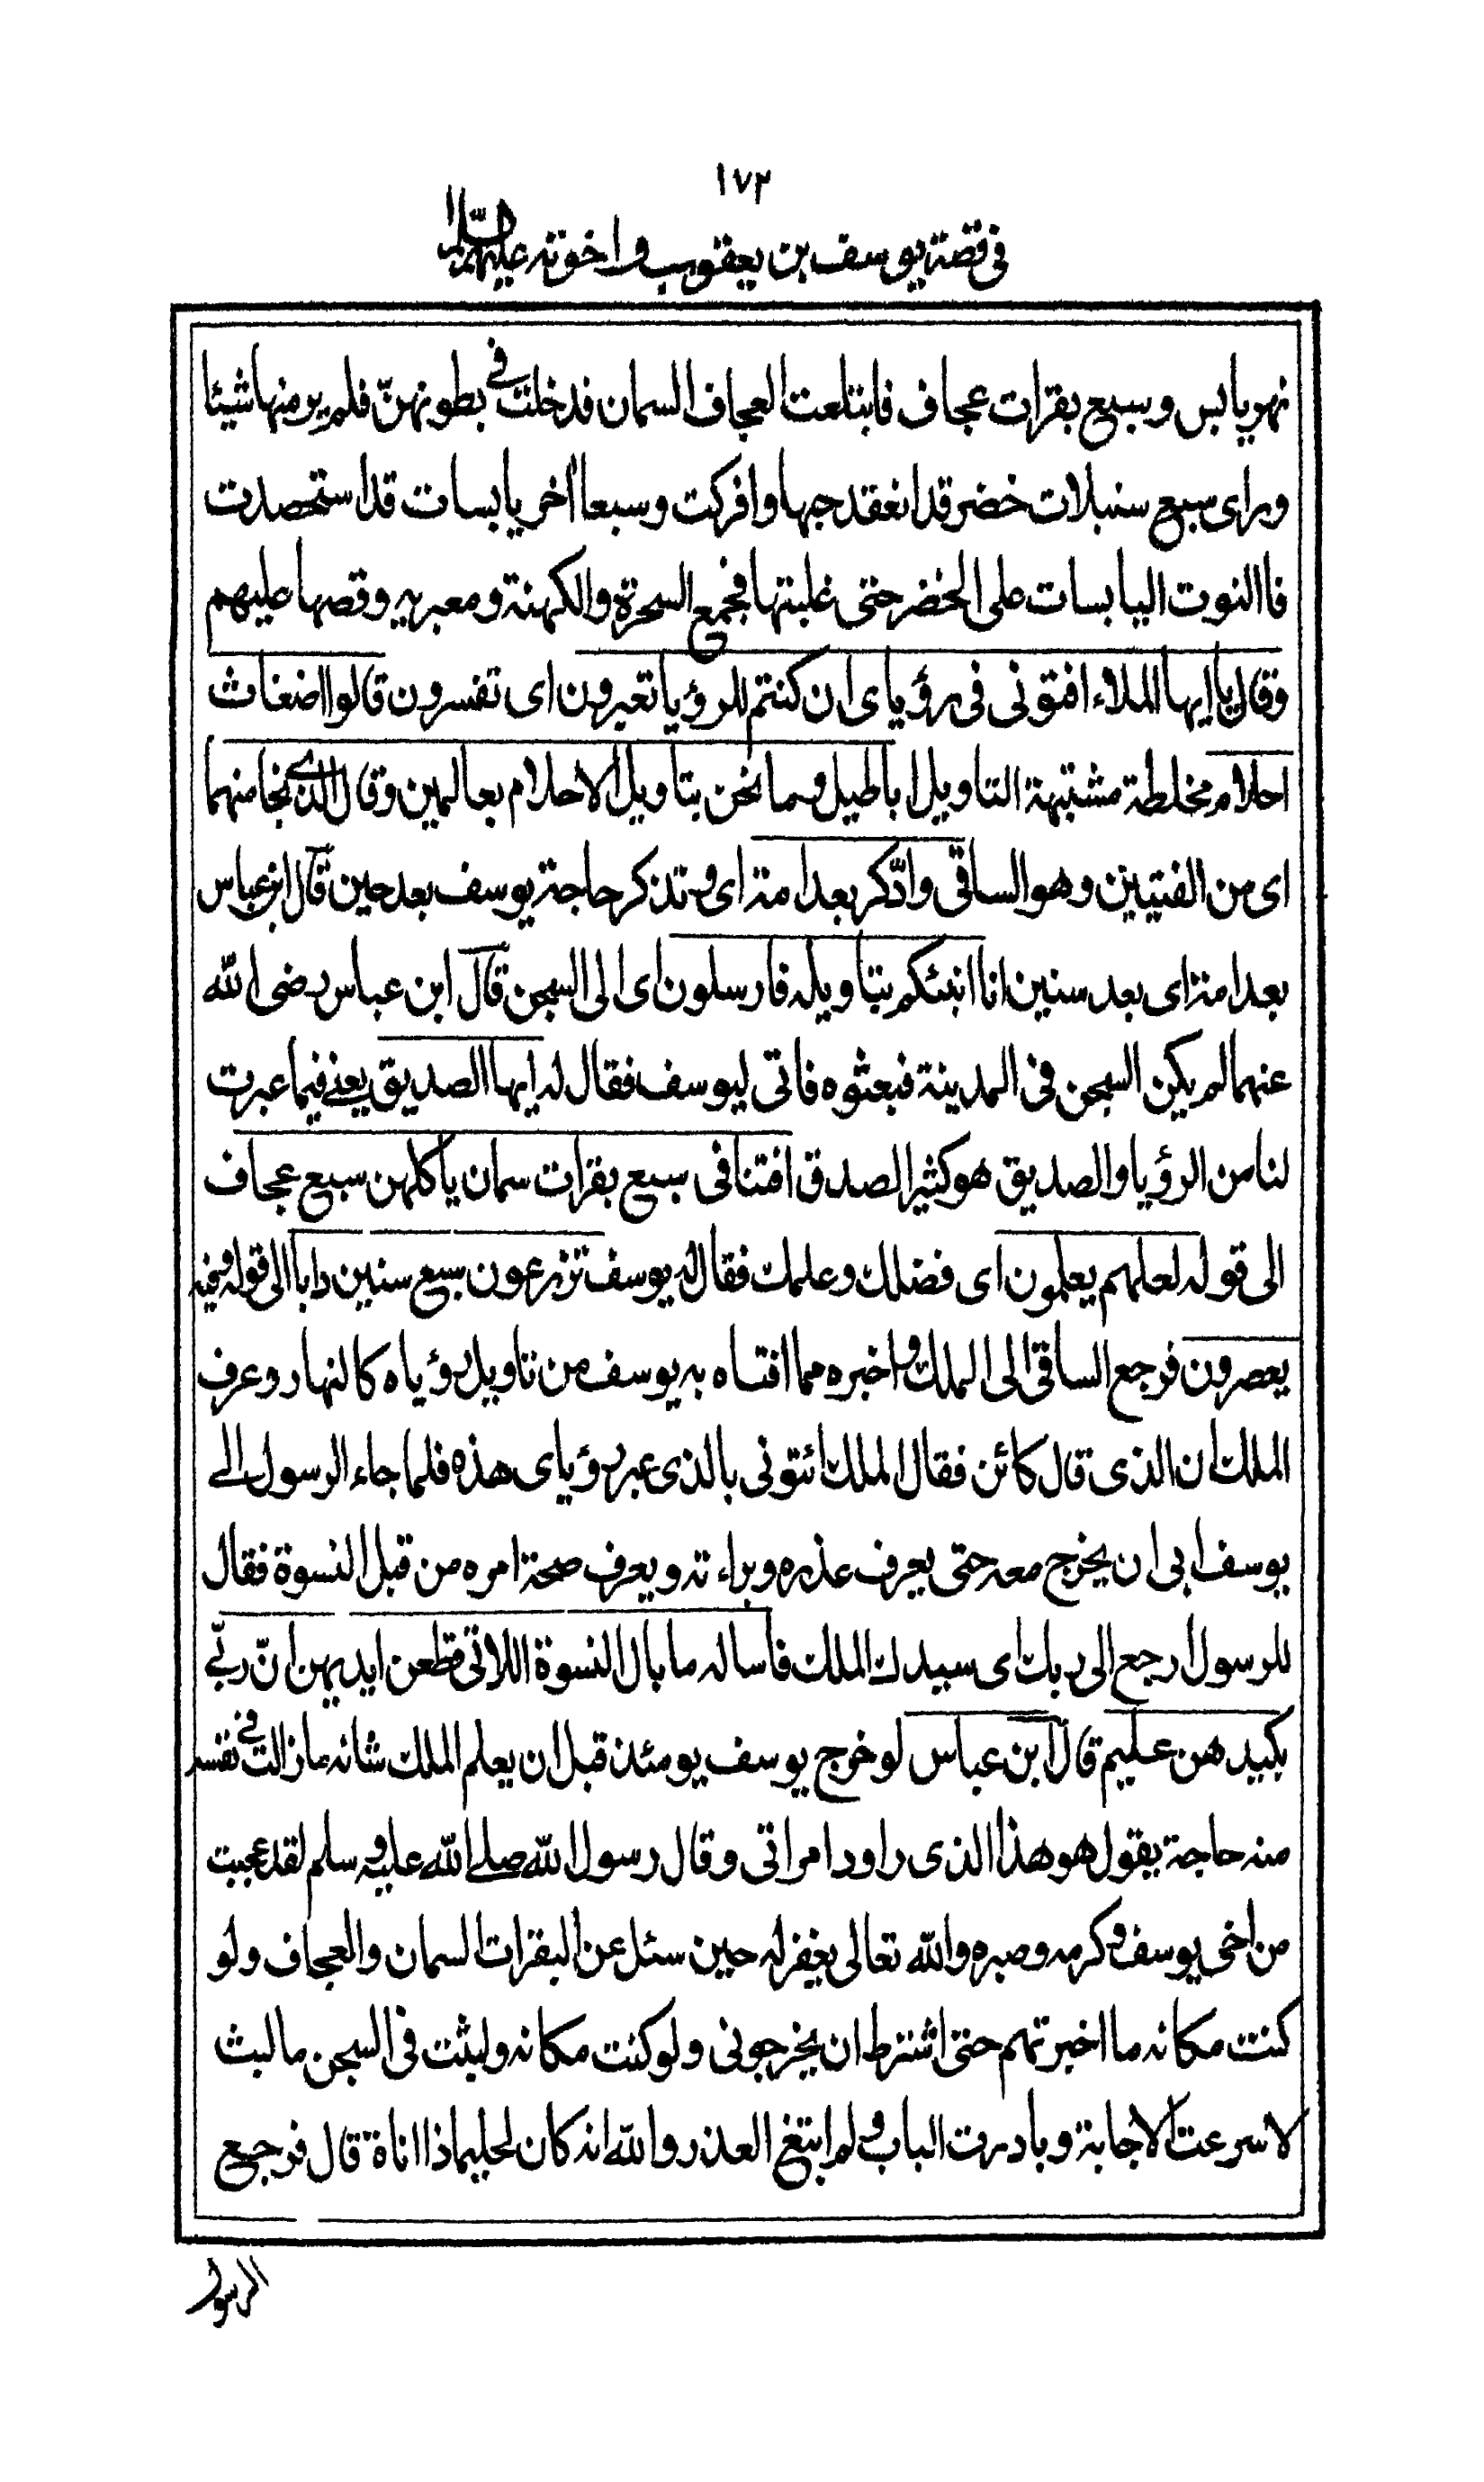 ١٧٢
في قصة يوسف بن يعقوب واخوته عليهم السلام
نهر يابس وسبع بقرات عجاف فابتلعت العجاف السمان فدخلت في بطونهنّ فلم ير منها شيئا
وراى سبع سنبلات خضر قد انعقد حبها وافركت وسبعا اخر يابسات قد استحصدت
فاالتوت اليابسات على الخضر حتى غلبتها فجمع السحرة والكهنة ومعبريه وقصها عليهم
وقال يا ايها الملاء افتونى فى رؤياى ان كنتم للرؤيا تعبرون اى تفسرون قالوا اضغاث
احلام مخلطة مشتبهة التاويل اباطيل وما نحن بتاويل الاحلام بعالمين وقال الذي نجا منهما
اى من الفتيين وهو الساقى وادّكر بعد امة اى وتذكر حاجة يوسف بعد حين قال ابن عباس
بعد امة اى بعد سنين انا انبئكم بتاويله فارسلون اى الى السجن قال ابن عباس رضى الله
عنهما لم يكن السجن فى المدينة فبعثوه فاتى ليوسف فقال له ايها الصديق يعنى فيما عبرت
لنا من الرؤيا والصديق هو كثير الصدق افتنا فى سبع بقرات سمان ياكلهن سبع عجاف
الى قوله لعلهم يعلمون اى فضلك وعلمك فقال له يوسف تزرعون سبع سنين دابا الى قوله وفيه
يعصرون فرجع الساقى الى الملك واخبره مما افتاه به يوسف من تاويل رؤياه كالنهار وعرف
الملك ان الذى قال كائن فقال الملك ائتونى بالذى عبر رؤياى هذه فلما جاء الرسول الى
يوسف ابى ان يخرج معه حتى يعرف عذره وبراء ته ويعرف صحة امره من قبل النسوة فقال
للرسول ارجع الى ربك اى سيدك الملك فاساله ما بال النسوة اللاتى قطعن ايديهن انّ ربّي
بكيدهن عليم قال ابن عباس لو خرج يوسف يومئذ قبل ان يعلم الملك شانه ما زالت في نفسه
منه حاجة يقول هو هذا الذى راود امراتى وقال رسول الله صلى الله عليه وسلم لقد عجبت
من اخى يوسف وكرمه وصبره والله تعالى يغفر له حين سئل عن البقرات السمان والعجاف ولو
كنت مكانه ما اخبرتهم حتى اشترط ان يخرجونى ولو كنت مكانه ولبثت فى السجن ما لبث
لاسرعت الاجابة وبادرت الباب ولم ابتغ العذر والله انه كان لحليما ذا اناة قال فرجع
الرسول